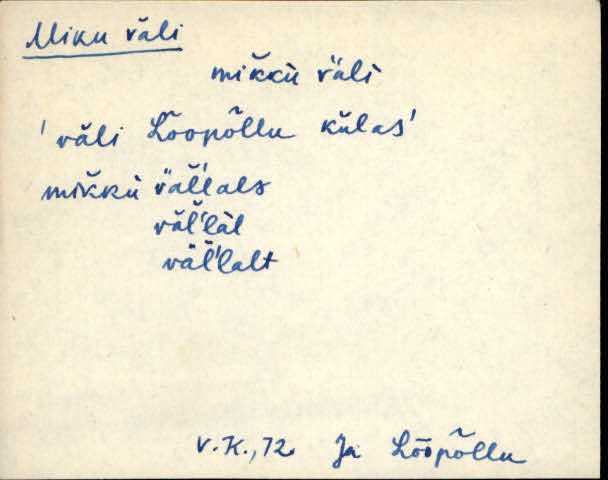 Miku väli
mik̆kù väli
'väli Lõopõllu külas'
mik̆kù väl̆'lals
väl̆'làl
väl̆'lalt
V.K., 72. Ja Lõõpõllu